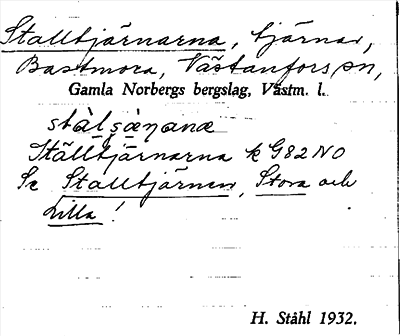 Stalltjärnarna, tjärnar,
Bastmora, Västanfors sn,
Gamla Norbergs bergslag, Västm. l.
stàl̨ʂæ̀ṇanæ
Ställtjärnarna k G82NO
Se Stalltjärnen, Stora och
Lilla!
H. Ståhl 1932.